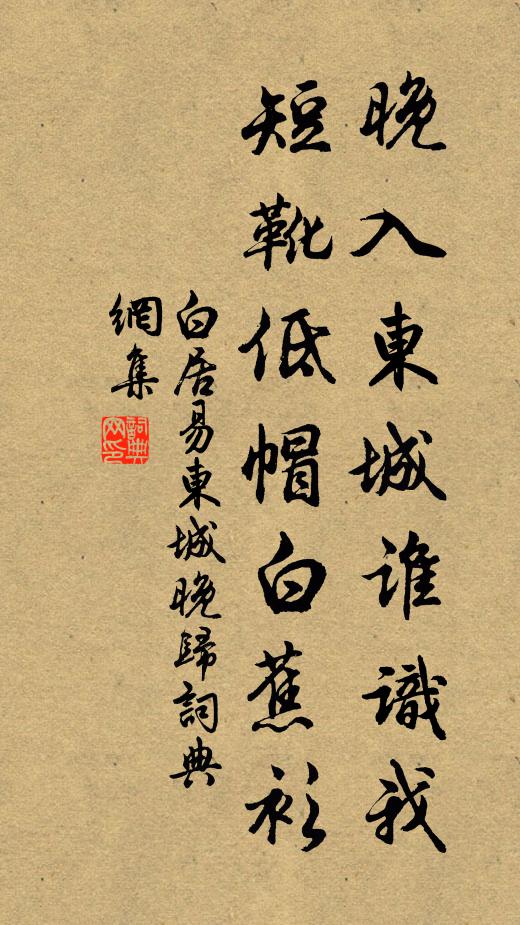 晚入東城誰識我
短靴低帽白蕉衫
白居易東城晚歸詞典
網集
詞典
网印